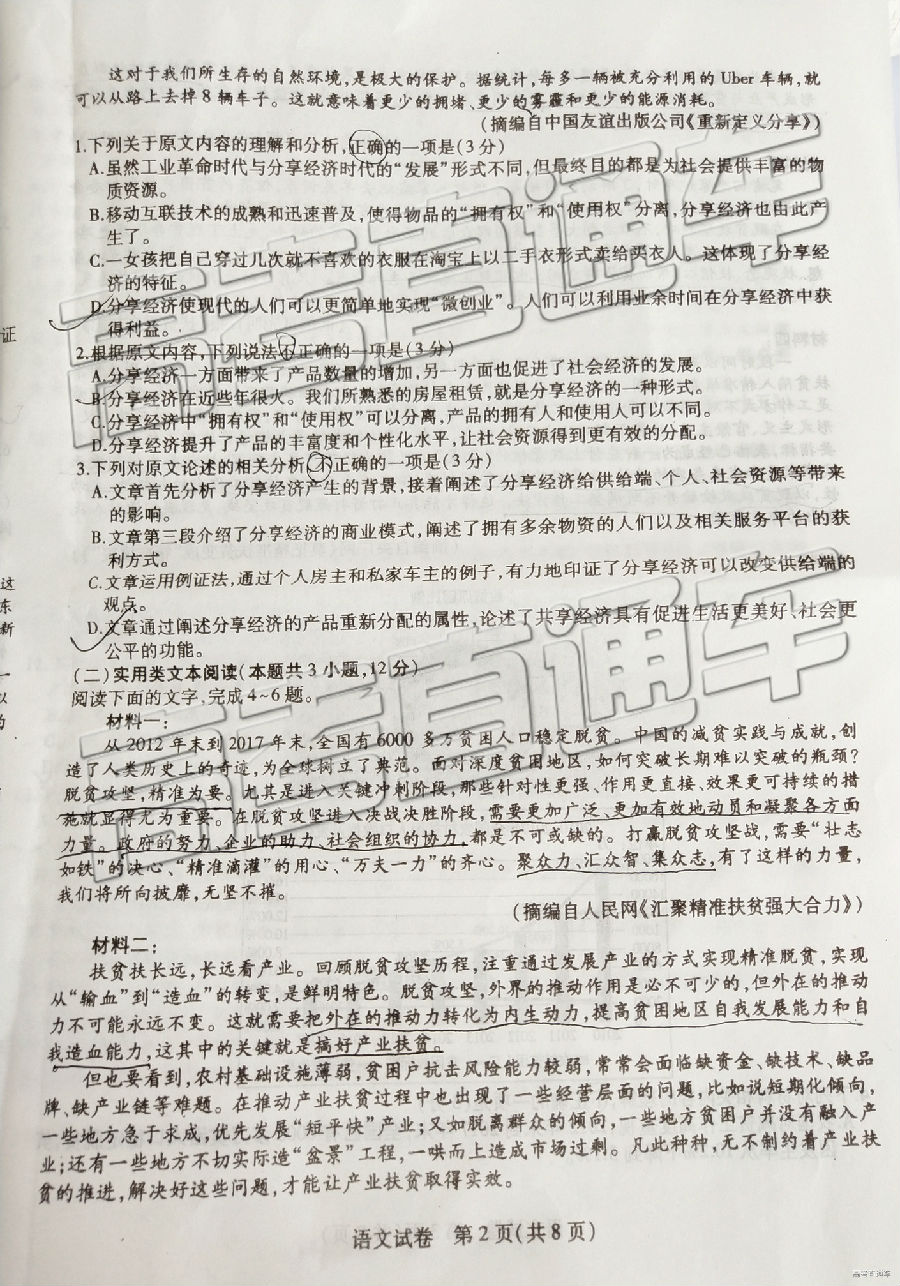 这对于我们所生存的自然环境,是极大的保护。据统计,每多一辆被充分利用的 Uber 车辆,就
可以从路上去掉 8 辆车子。这就意味着更少的拥堵、更少的雾霾和更少的能源消耗。
(摘编自中国友谊出版公司《重新定义分享》)
1.下列关于原文内容的理解和分析,正确的一项是(3 分)
A.虽然工业革命时代与分享经济时代的“发展”形式不同,但最终目的都是为社会提供丰富的物
质资源。
B.移动互联技术的成熟和迅速普及,使得物品的“拥有权”和“使用权”分离,分享经济也由此产
生了。
C.一女孩把自己穿过几次就不喜欢的衣服在淘宝上以二手衣形式卖给买衣人。这体现了分享经
济的特征。
D.分享经济使现代的人们可以更简单地实现“微创业”。人们可以利用业余时间在分享经济中获
得利益。
2.根据原文内容,下列说法不正确的一项是(3 分)
A.分享经济一方面带来了产品数量的增加,另一方面也促进了社会经济的发展。
B.分享经济在近些年很火。我们所熟悉的房屋租赁,就是分享经济的一种形式。
C.分享经济中“拥有权”和“使用权”可以分离,产品的拥有人和使用人可以不同。
D.分享经济提升了产品的丰富度和个性化水平,让社会资源得到更有效的分配。
3.下列对原文论述的相关分析,不正确的一项是(3 分)
A.文章首先分析了分享经济产生的背景,接着阐述了分享经济给供给端、个人、社会资源等带来
的影响。
B.文章第三段介绍了分享经济的商业模式,阐述了拥有多余物资的人们以及相关服务平台的获
利方式。
C.文章运用例证法,通过个人房主和私家车主的例子,有力地印证了分享经济可以改变供给端的
观点。
D.文章通过阐述分享经济的产品重新分配的属性,论述了共享经济具有促进生活更美好、社会更
公平的功能。
(二)实用类文本阅读(本题共 3 小题,12 分)
阅读下面的文字,完成 4~6 题。
材料一:
从 2012 年末到 2017 年末,全国有 6000 多万贫困人口稳定脱贫。中国的减贫实践与成就,创
造了人类历史上的奇迹,为全球树立了典范。面对深度贫困地区,如何突破长期难以突破的瓶颈?
脱贫攻坚,精准为要。尤其是进入关键冲刺阶段,那些针对性更强、作用更直接、效果更可持续的措
施就显得尤为重要。在脱贫攻坚进入决战决胜阶段,需要更加广泛、更加有效地动员和凝聚各方面
力量。政府的努力、企业的助力、社会组织的协力,都是不可或缺的。打赢脱贫攻坚战,需要“壮志
如铁”的决心、“精准滴灌”的用心、“万夫一力”的齐心。聚众力、汇众智、集众志,有了这样的力量,
我们将所向披靡,无坚不摧。
(摘编自人民网《汇聚精准扶贫强大合力》)
材料二:
扶贫扶长远,长远看产业。回顾脱贫攻坚历程,注重通过发展产业的方式实现精准脱贫,实现
从“输血”到“造血”的转变,是鲜明特色。脱贫攻坚,外界的推动作用是必不可少的,但外在的推动
力不可能永远不变。这就需要把外在的推动力转化为内生动力,提高贫困地区自我发展能力和自
我造血能力,这其中的关键就是搞好产业扶贫。
但也要看到,农村基础设施薄弱,贫困户抗击风险能力较弱,常常会面临缺资金、缺技术、缺品
牌、缺产业链等难题。在推动产业扶贫过程中也出现了一些经营层面的问题,比如说短期化倾向,
一些地方急于求成,优先发展“短平快”产业;又如脱离群众的倾向,一些地方贫困户并没有融入产
业;还有一些地方不切实际造“盆景”工程,一哄而上造成市场过剩。凡此种种,无不制约着产业扶
贫的推进,解决好这些问题,才能让产业扶贫取得实效。
语文试卷 第 2 页(共 8 页)
高考直通车
高考直通车
高考直通车
证
这
东
新
一
以